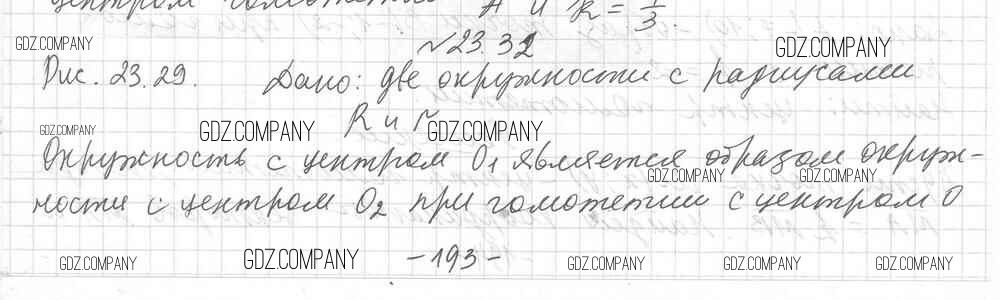 центром гомотетии A и k = 1/3.
GDZ.COMPANY
№23.32
GDZ.COMPANY
Рис. 23.29. Дано: две окружности с радиусами
GDZ.COMPANY GDZ.COMPANY R и r GDZ.COMPANY
Окружность с центром O₁ является образом окруж-
GDZ.COMPANY GDZ.COMPANY
ности с центром O₂ при гомотетии с центром O
GDZ.COMPANY GDZ.COMPANY -193- GDZ.COMPANY GDZ.COMPANY GDZ.COMPANY